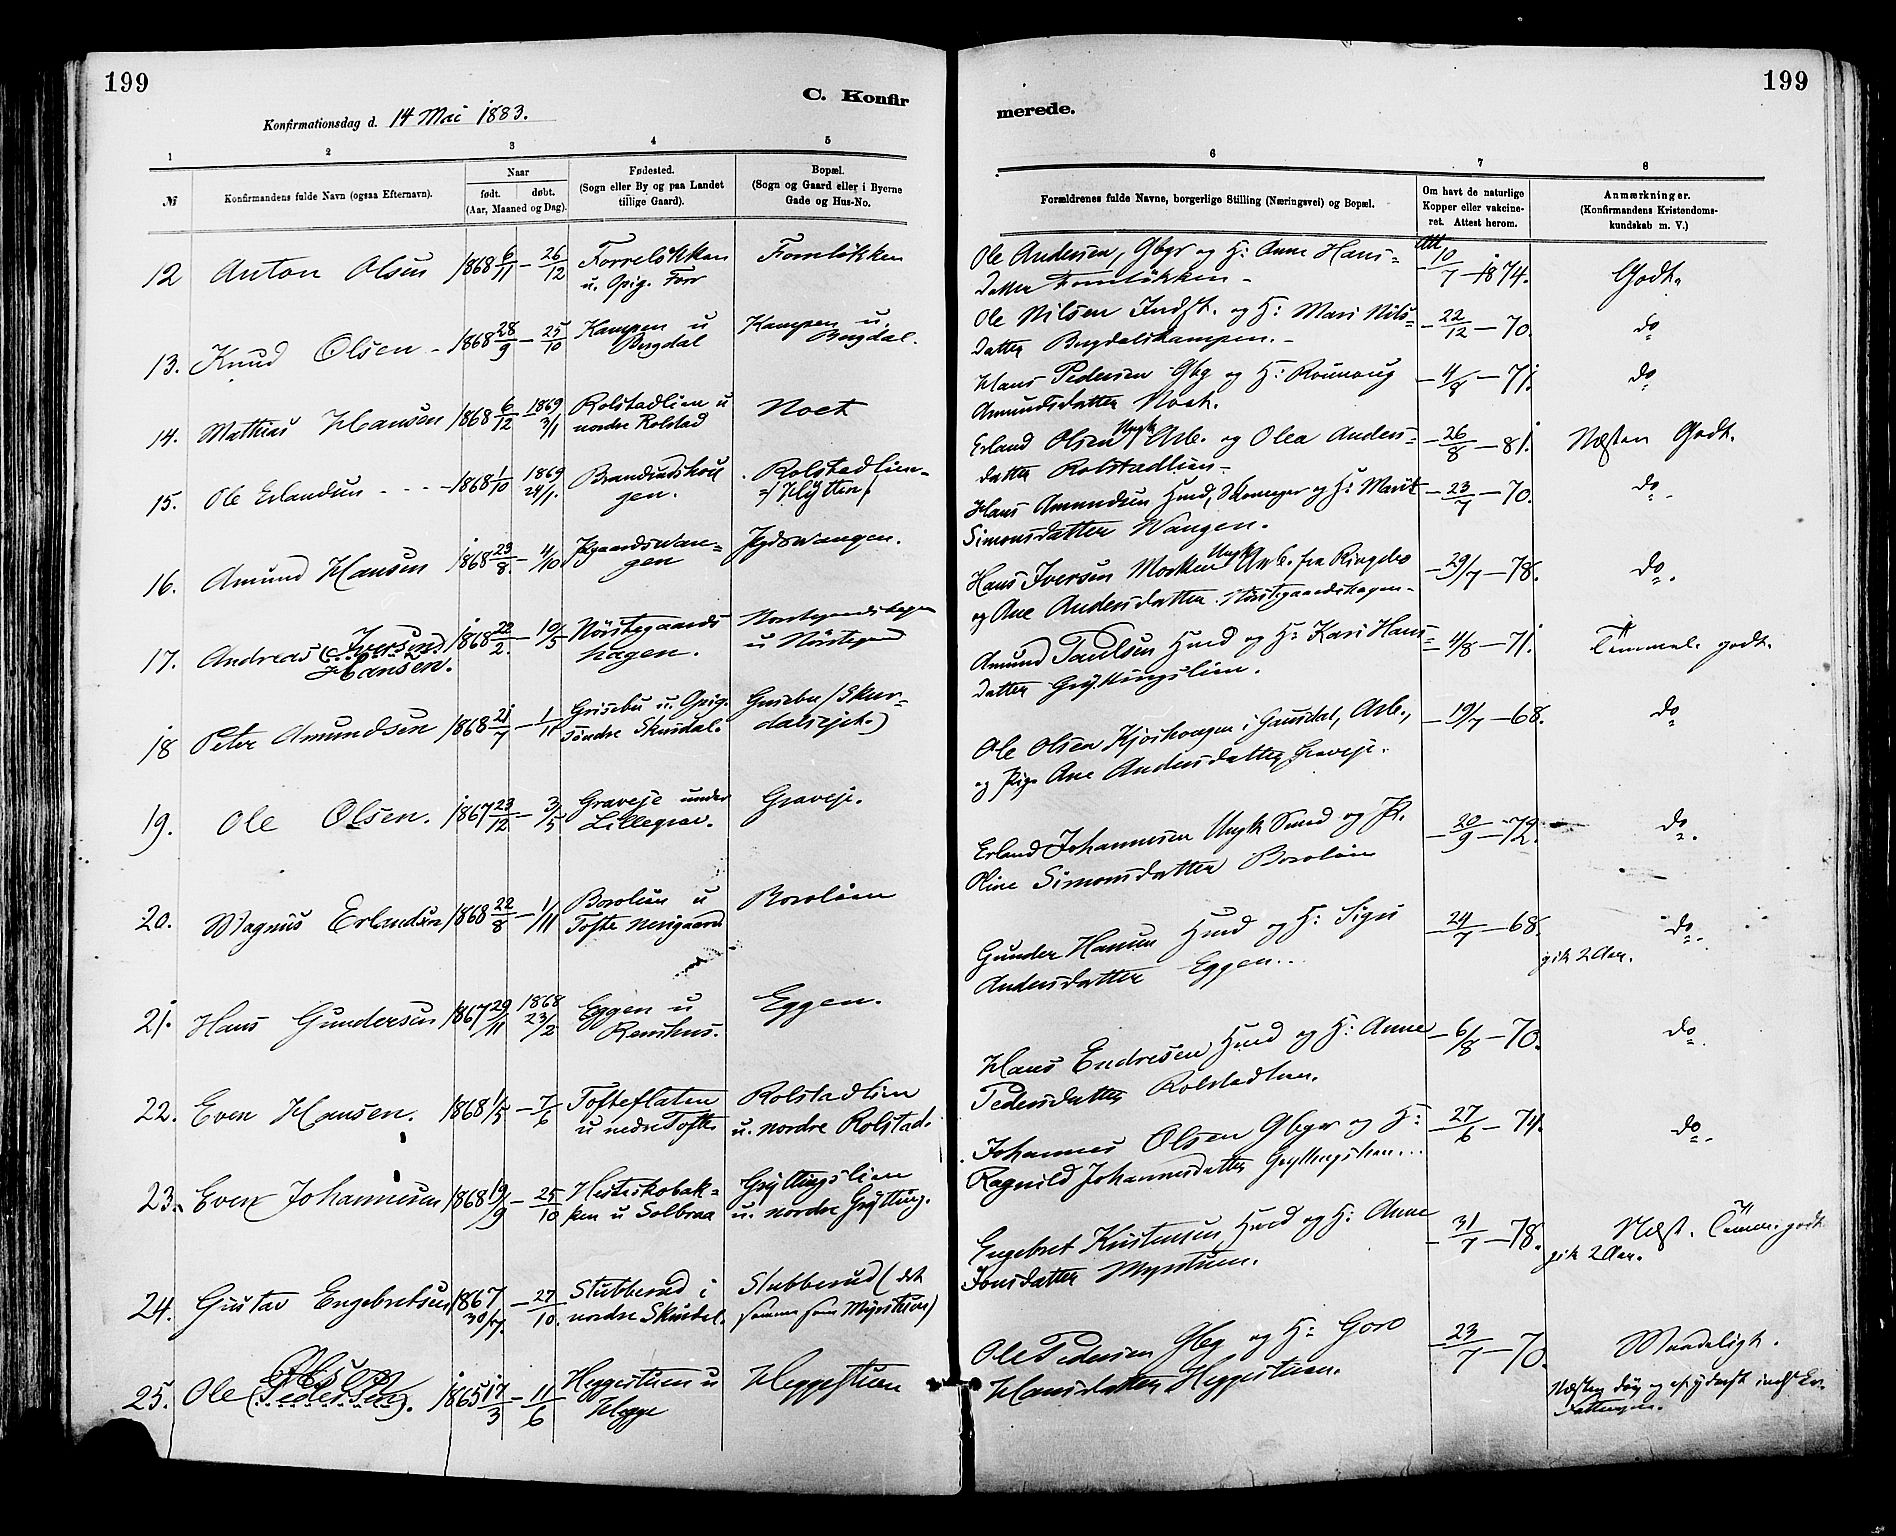 199
C. Konfir
Konfirmationsdag d. 14 Mai 1883.
1 2 3 4 5
№
Konfirmandens fulde Navn (ogsaa Efternavn).
Naar
født. døbt.
(Aar, Maaned og Dag).
Fødested.
(Sogn eller By og paa Landet
tillige Gaard).
Bopæl.
(Sogn og Gaard eller i Byerne
Gade og Hus-No.
12 Anton Olsen 1868 6/11 – 26/12 Forreløkken Forreløkken
u. Opig. Forr
13. Knud Olsen – 1868 28/9 – 25/10 Kampen u Kampen u.
Bugdal Bugdal.
14. Mathias Hansen 1868 6/12 – 1869 3/1 Rolstadlien u Noet
nordre Rolstad
15. Ole Erlandsen - - - 1868 1/10 1869 24/1. Rolstadlien
gen. Hytten
16. Amund Hansen 1868 23/8. – 4/10
gen
17. Andreas (Iversen) 1868 22/2. – 10/5 Nórstegaards
Hansen. hagen. u Nórstegaard
18 Peter Amundsen 1868 21/7 – 1/11 Grisebu u. Opig. Grisebu (Skur-
søndre Skurdal. dalsejet.)
19. Ole Olsen. 1867 23/12 – 3/5 Graveje under Graveje.
Lillegrav.
20. Magnus Erlandsen 1868 22/8 – 1/11 Boroliin u Boroliin
Tofte
21. Hans Gundersen 1867 29/11 1868 23/2 Eggen u Eggen.
22. Even Hansen. 1868 1/5 – 7/6 Tofteflaten Rolstadlien
u nedre Tofte. u. nordre Rolstad.
23. Even Johannesen 1868 19/9 – 25/10 Hesteskobak- Grýttingslien
ken u Solbraa u. nordre Grýtting.
24. Gustav Engebretsen 1867 30/7. – 27/10. Stubberud i Stubberud (det
nordre Skurdal. samme som Myrstuen)
Olsen
25. Ole (Pedersen). 1865 17/3 – 11/6 Heggestuen u Heggestuen
Hegge
199
merede.
6 7 8
Forældrenes fulde Navne, borgerlige Stilling (Næringsvei) og Bopæl.
Om havt de naturlige
Kopper eller vakcine-
ret. Attest herom.
Anmærkninger.
(Konfirmandens Kristendoms-
kundskab m. V.)
Ole Andersen, Gbgr og H: Anne Hans- Att 10/7 – 1874. Godt.
datter Forreløkken –
Ole Nilsen Indst. og H: Mari Nils- – 22/12 – 70. do
datter Bugdalskampen. –
Hans Pedersen Gbg og H: Rönnoug – 4/8 – 71. do
Amundsdatter Noet.
Erland Olsen Ungk Arb. og Olea Anders- – 26/8 – 81. Næsten Godt.
datter Rolstadlien –
Hans Amundsen Husd, Skomager og H: Marit – 23/7 – 70. do
Simonsdatter Wangen.
Hans Iversen Moeken Ungk Arb. fra Ringebo – 29/7 – 78. do.
og Ane Andersdatter. Nórstegaardshagen –
Amund Paulsen Husd og H: Kari Hans- – 4/8 – 71. Temmel. godt.
datter Grýttingslien.
Ole Olsen i Gausdal, Arb., – 19/7 – 68. do
og Pige Ane Andersdatter, Graveje.
Erland Johannesen Ungk Smed og P. – 20/9 – 72. do.
Oline Simonsdatter Boroliin
Gunder Hansen Husd og H: Sigri – 24/7 – 68. do.
Andersdatter Eggen. gik 2 Aar.
Hans Endresen Husd og H: Anne – 6/8 – 70. do
Pedersdatter Rolstadlien.
Johannes Olsen Gbgr og H: – 27/6 – 74. do.
Ragnild Johannesdatter Gryttingslien
Engebret Kristensen Husd og H: Anne – 31/7 – 78. Næst. Temm. godt
Jonsdatter Myrstuen. gik 2 Aar.
Ole Pedersen Gbg og H: Goro 23/7 – 70. Maadeligt.
Hansdatter Heggestuen. Næsten døv og